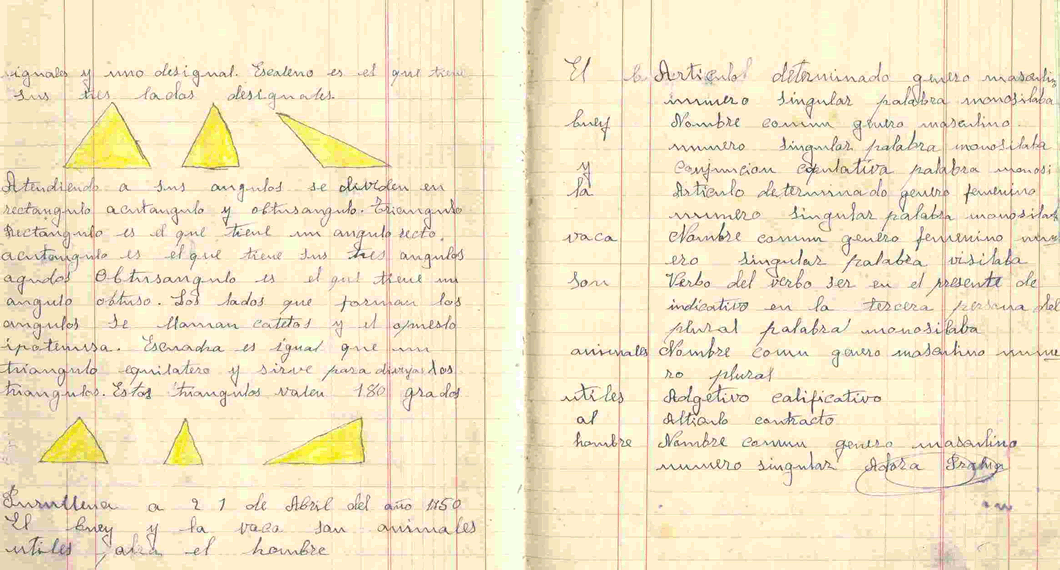 iguales y uno desigual. Escaleno es el que tiene
sus tres lados desiguales.
Atendiendo a sus angulos se dividen en
rectangulo acutangulo y obtusangulo. Triangulo
Rectangulo es el que tiene un angulo recto.
acutangulo es el que tiene sus tres angulos
agudos Obtusangulo es el que tiene un
angulo obtuso. Los lados que forman los
angulos se llaman catetos y el opuesto
ipotenusa. Escuadra es igual que un
triangulo equilatero y sirve para los
triangulos. Estos triangulos valen 180 grados
Purullena a 21 de Abril del año 1950
El buey y la vaca son animales
utiles para el hombre
El Articulo determinado genero masculin
numero singular palabra monosilaba
buey Nombre comun genero masculino
numero singular palabra monosilaba
y conjuncion copulativa palabra monosi
la Articulo determinado genero femenino
numero singular palabra monosilab
vaca Nombre comun genero femenino num
ero singular palabra visilaba
son Verbo del verbo ser en el presente de
indicativo en la tercera persona del
plural palabra monosilaba
animales Nombre comun genero masculino nume
ro plural
utiles Adgetivo calificativo
al Altiaulo contracto
hombre Nombre comun genero masculino
numero singular